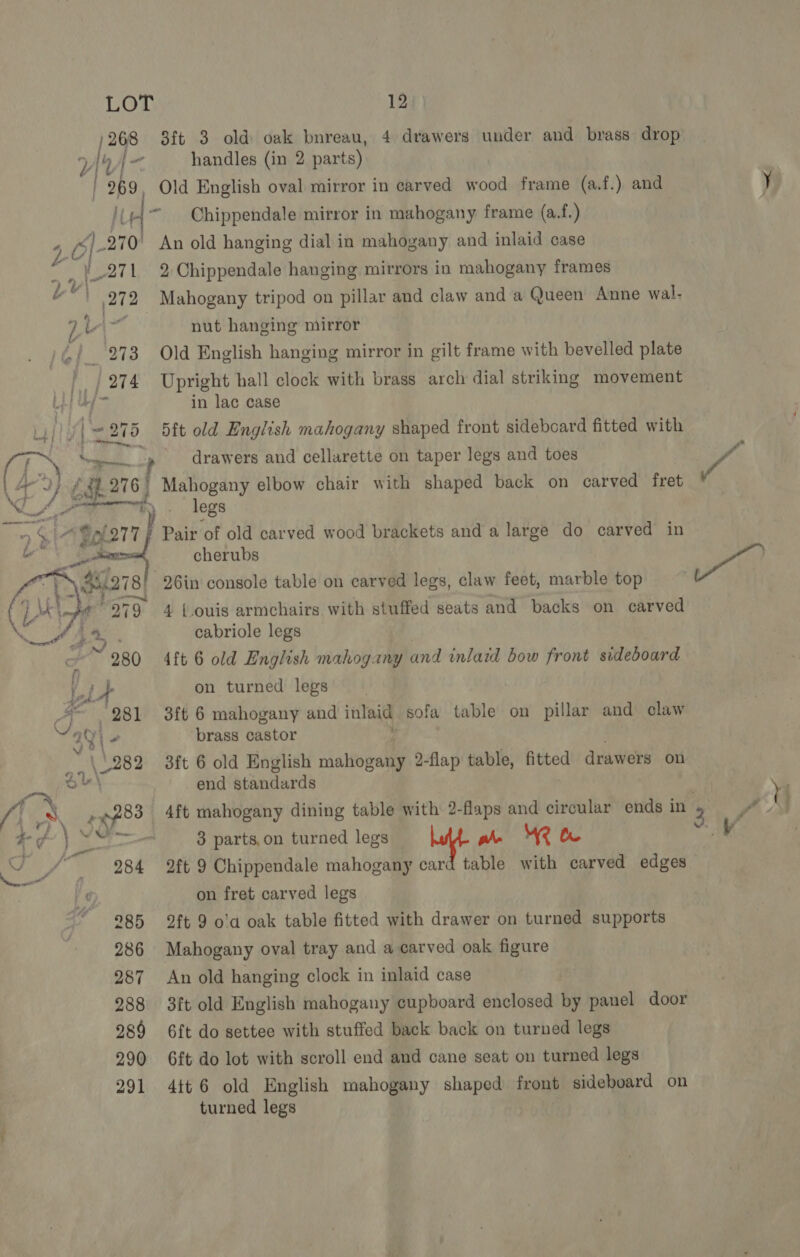 LOT 12
268 3ft 3 old oak bnreau, 4 drawers under and brass drop
handles (in 2 parts)
269 Old English oval mirror in carved wood frame (a.f.) and
Chippendale mirror in mahogany frame (a.f.)
270 An old hanging dial in mahogany and inlaid case
271 2 Chippendale hanging mirrors in mahogany frames
272 Mahogany tripod on pillar and claw and a Queen Anne wal-
nut hanging mirror
273 Old English hanging mirror in gilt frame with bevelled plate
274 Upright hall clock with brass arch dial striking movement
in lac case
275 5ft old English mahogany shaped front sideboard fitted with
drawers and cellarette on taper legs and toes
276 Mahogany elbow chair with shaped back on carved fret
legs
277 Pair of old carved wood brackets and a large do carved in
cherubs
278 26in console table on carved legs, claw feet, marble top
279 4 Louis armchairs with stuffed seats and backs on carved
cabriole legs
280 4ft 6 old English mahogany and inlaid bow front sideboard
on turned legs
281 3ft 6 mahogany and inlaid sofa table on pillar and claw
brass castor
282 3ft 6 old English mahogany 2-flap table, fitted drawers on
end standards
283 4ft mahogany dining table with 2-flaps and circular ends in
3 parts, on turned legs
284 2ft 9 Chippendale mahogany card table with carved edges
on fret carved legs
285 2ft 9 o'a oak table fitted with drawer on turned supports
286 Mahogany oval tray and a carved oak figure
287 An old hanging clock in inlaid case
288 3ft old English mahogany cupboard enclosed by panel door
289 6ft do settee with stuffed back back on turned legs
290 6ft do lot with scroll end and cane seat on turned legs
291 4ft 6 old English mahogany shaped front sideboard on
turned legs